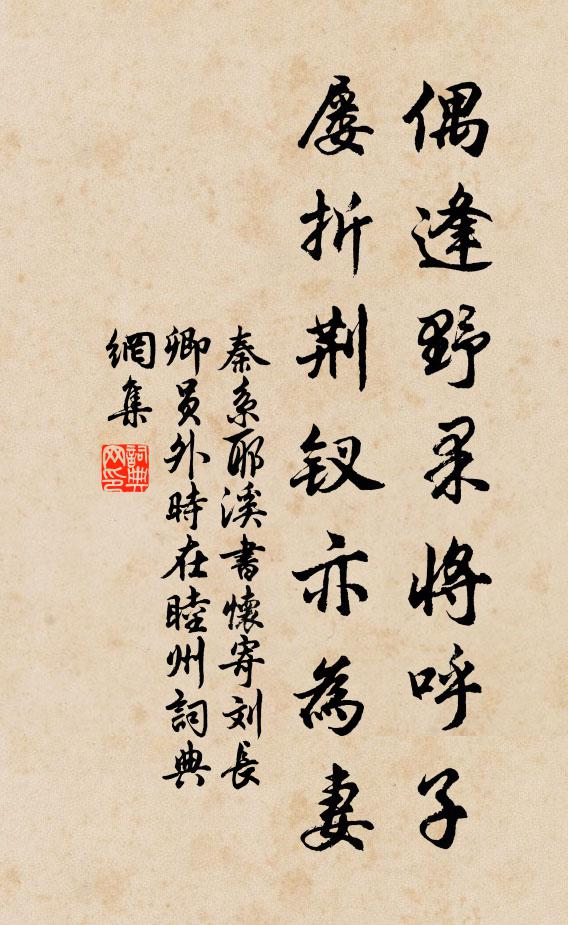 偶逢野果将呼子
屡折荆钗亦為妻
秦系耶溪書懷寄刘長
卿員外時在睦州詞典
網集
詞典
网印